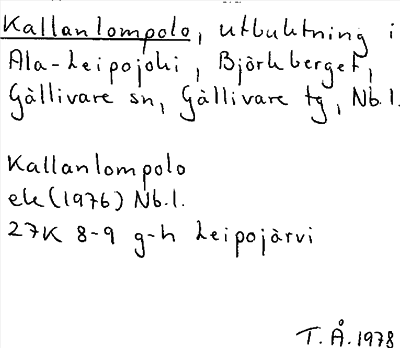 Kallanlompolo, utbuktning i
Ala-Leipojoki, Björkberget,
Gällivare sn, Gällivare tg, Nb.l.
Kallanlompolo
ek (1976) Nb.l.
27K 8-9 g-h Leipojärvi
T.Å. 1978